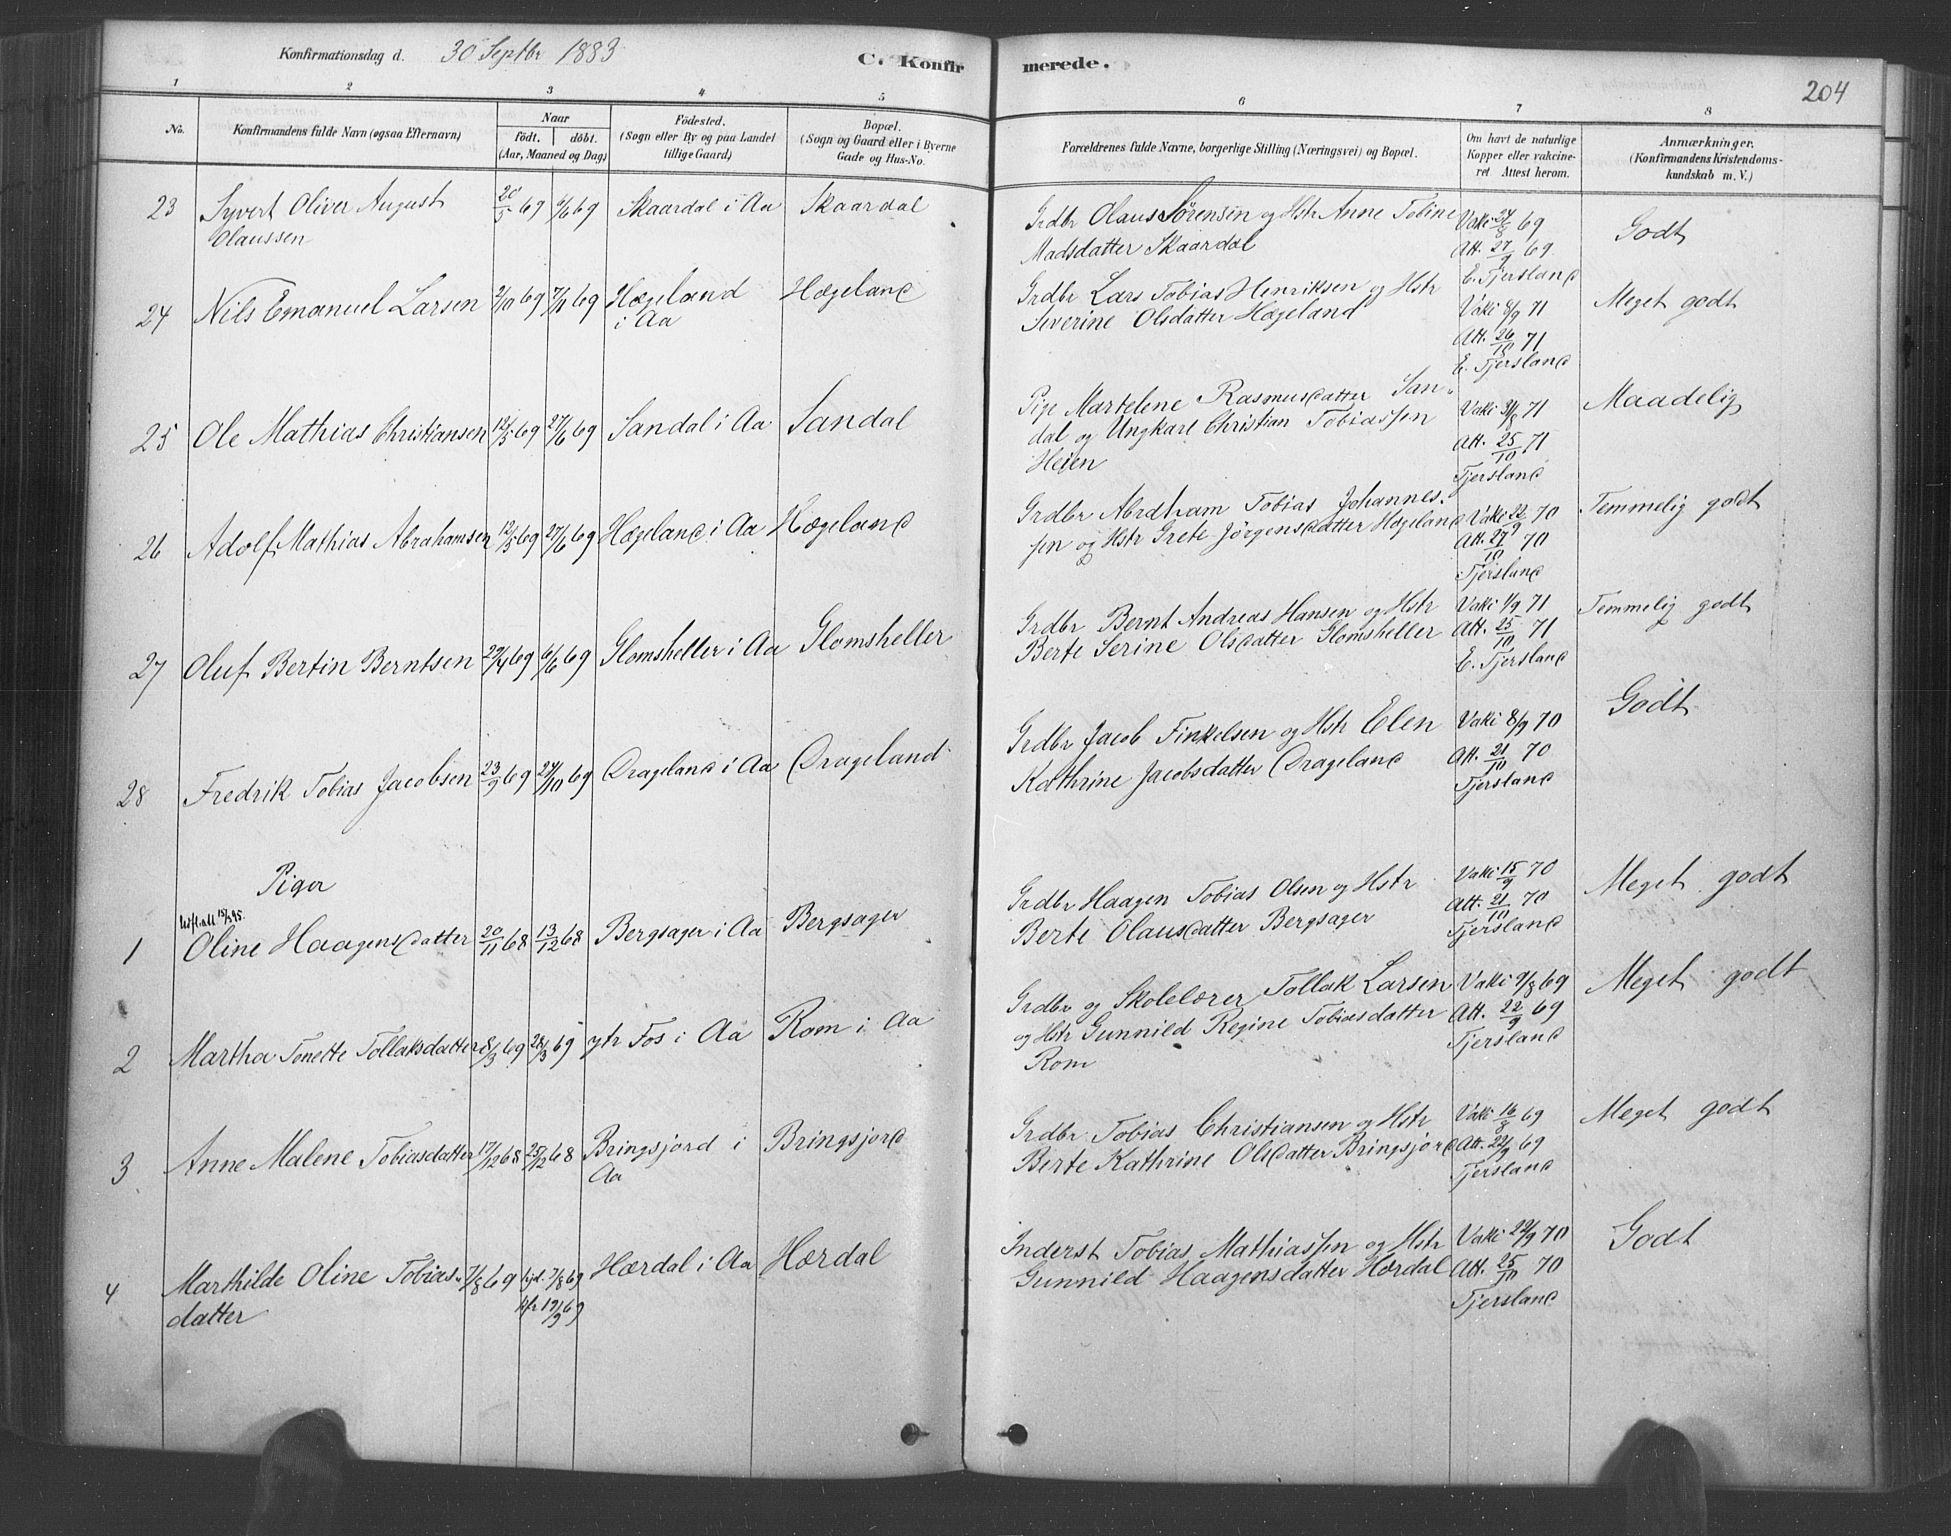 Konfirmationsdag d. 30 Septbr 1883
C. Konfirmerede.
204
1 2 3 4 5 6 7 8
No.
Konfirmandens fulde Navn (ogsaa Efternavn)
Naar
födt. döbt.
(Aar, Maaned og Dag)
Födested.
(Sogn eller By og paa Landet
tillige Gaard)
Bopæl.
(Sogn og Gaard eller i Byerne
Gade og Hus-No.
Forældrenes fulde Navne, borgerlige Stilling (Næringsvei) og Bopæl.
Om havt de naturlige
Kopper eller vakcine-
ret Attest herom.
Anmærkninger.
(Konfirmandens Kristendoms-
kundskab m. V.)
23 Syvert Oliver August 20/5 69 6/6 69 Skaardal i Aa Skaardal
Olaussen
Grdbr Olaus Sørensen og Hstr Anne Tobine
Madsdatter Skaardal
Vaki 24/8 69
Att. 27/9 69
E. Tjersland
Godt
24 Nils Emanuel Larsen 2/10 69 7/11 69 Hægeland Hægeland
i Aa
Grdbr Lars Tobias Henriksen og Hstr
Severine Olsdatter Hægeland
Vaki 8/9 71
Att. 26/10 71
E. Tjersland
Meget godt
25 Ole Mathias Christiansen 12/5 69 27/6 69 Sandal i Aa Sandal
Pige Martelene Rasmusdatter San-
dal og Ungkarl Christian Tobiassen
Heien
Vaki 31/8 71
Att. 25/10 71
Tjersland
Maadelig
26 Adolf Mathias Abrahamsen 12/5 69 27/6 69 Hægeland i Aa Hægeland
Grdbr Abraham Tobias Johannes-
sen og Hstr Grete Jörgensdatter Hægeland
Vaki 22/9 70
Att. 27/10 70
Tjersland
Temmelig godt
27 Oluf Bertin Berntsen 29/4 69 6/6 69 Glomsheller i Aa Glomsheller
Grdbr Bernt Andreas Hansen og Hstr
Berte Serine Olsdatter Glomsheller
Vaki 1/9 71
Att. 25/10 71
E. Tjersland
Temmelig godt
28 Fredrik Tobias Jacobsen 23/9 69 24/10 69 Drageland i Aa Drageland
Grdbr Jacob Finkelsen og Hstr Elen
Kathrine Jacobsdatter Drageland
Vaki 8/9 70
Att. 21/10 70
Tjersland
Godt
Piger
1 Oline Haagensdatter 20/11 68 13/12 68 Bergsager i Aa Bergsager
Grdbr Haagen Tobias Olsen og Hstr
Berte Olausdatter Bergsager
Vaki 15/9 70
Att. 21/10 70
Tjersland
Meget godt
2 Martha Tonette Tollaksdatter 8/3 69 28/3 69 ytr Fos i Aa Rom i Aa
Grdbr og Skolelærer Tollak Larsen
og Hstr Gunnild Regine Tobiasdatter
Rom
Vaki 9/8 69
Att. 22/9 69
Tjersland
Meget godt
3 Anne Malene Tobiasdatter 17/12 68 25/12 68 Bringsjord i Bringsjord
Aa
Grdbr Tobias Christiansen og Hstr
Berte Kathrine Olsdatter Bringsjord
Vaki 16/8 69
Att. 22/9 69
Tjersland
Meget godt
4 Marthilde Oline Tobias- 7/8 69 hjd. 7/8 69 Hærdal i Aa Hærdal
datter kfr 19/9 69
Inderst Tobias Mathiassen og Hstr
Gunnild Haagensdatter Hærdal
Vaki 22/9 70
Att. 25/10 70
Tjersland
Godt